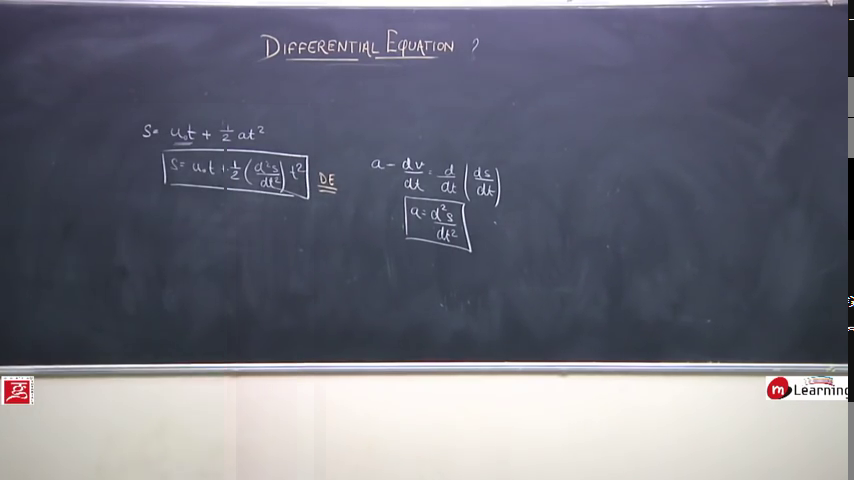 DIFFERENTIAL EQUATION ?
S = u₀t + 1/2 at²
S = u₀t + 1/2 (d²s/dt²) t² DE
a = dv/dt = d/dt (ds/dt)
a = d²s/dt²
m Learning